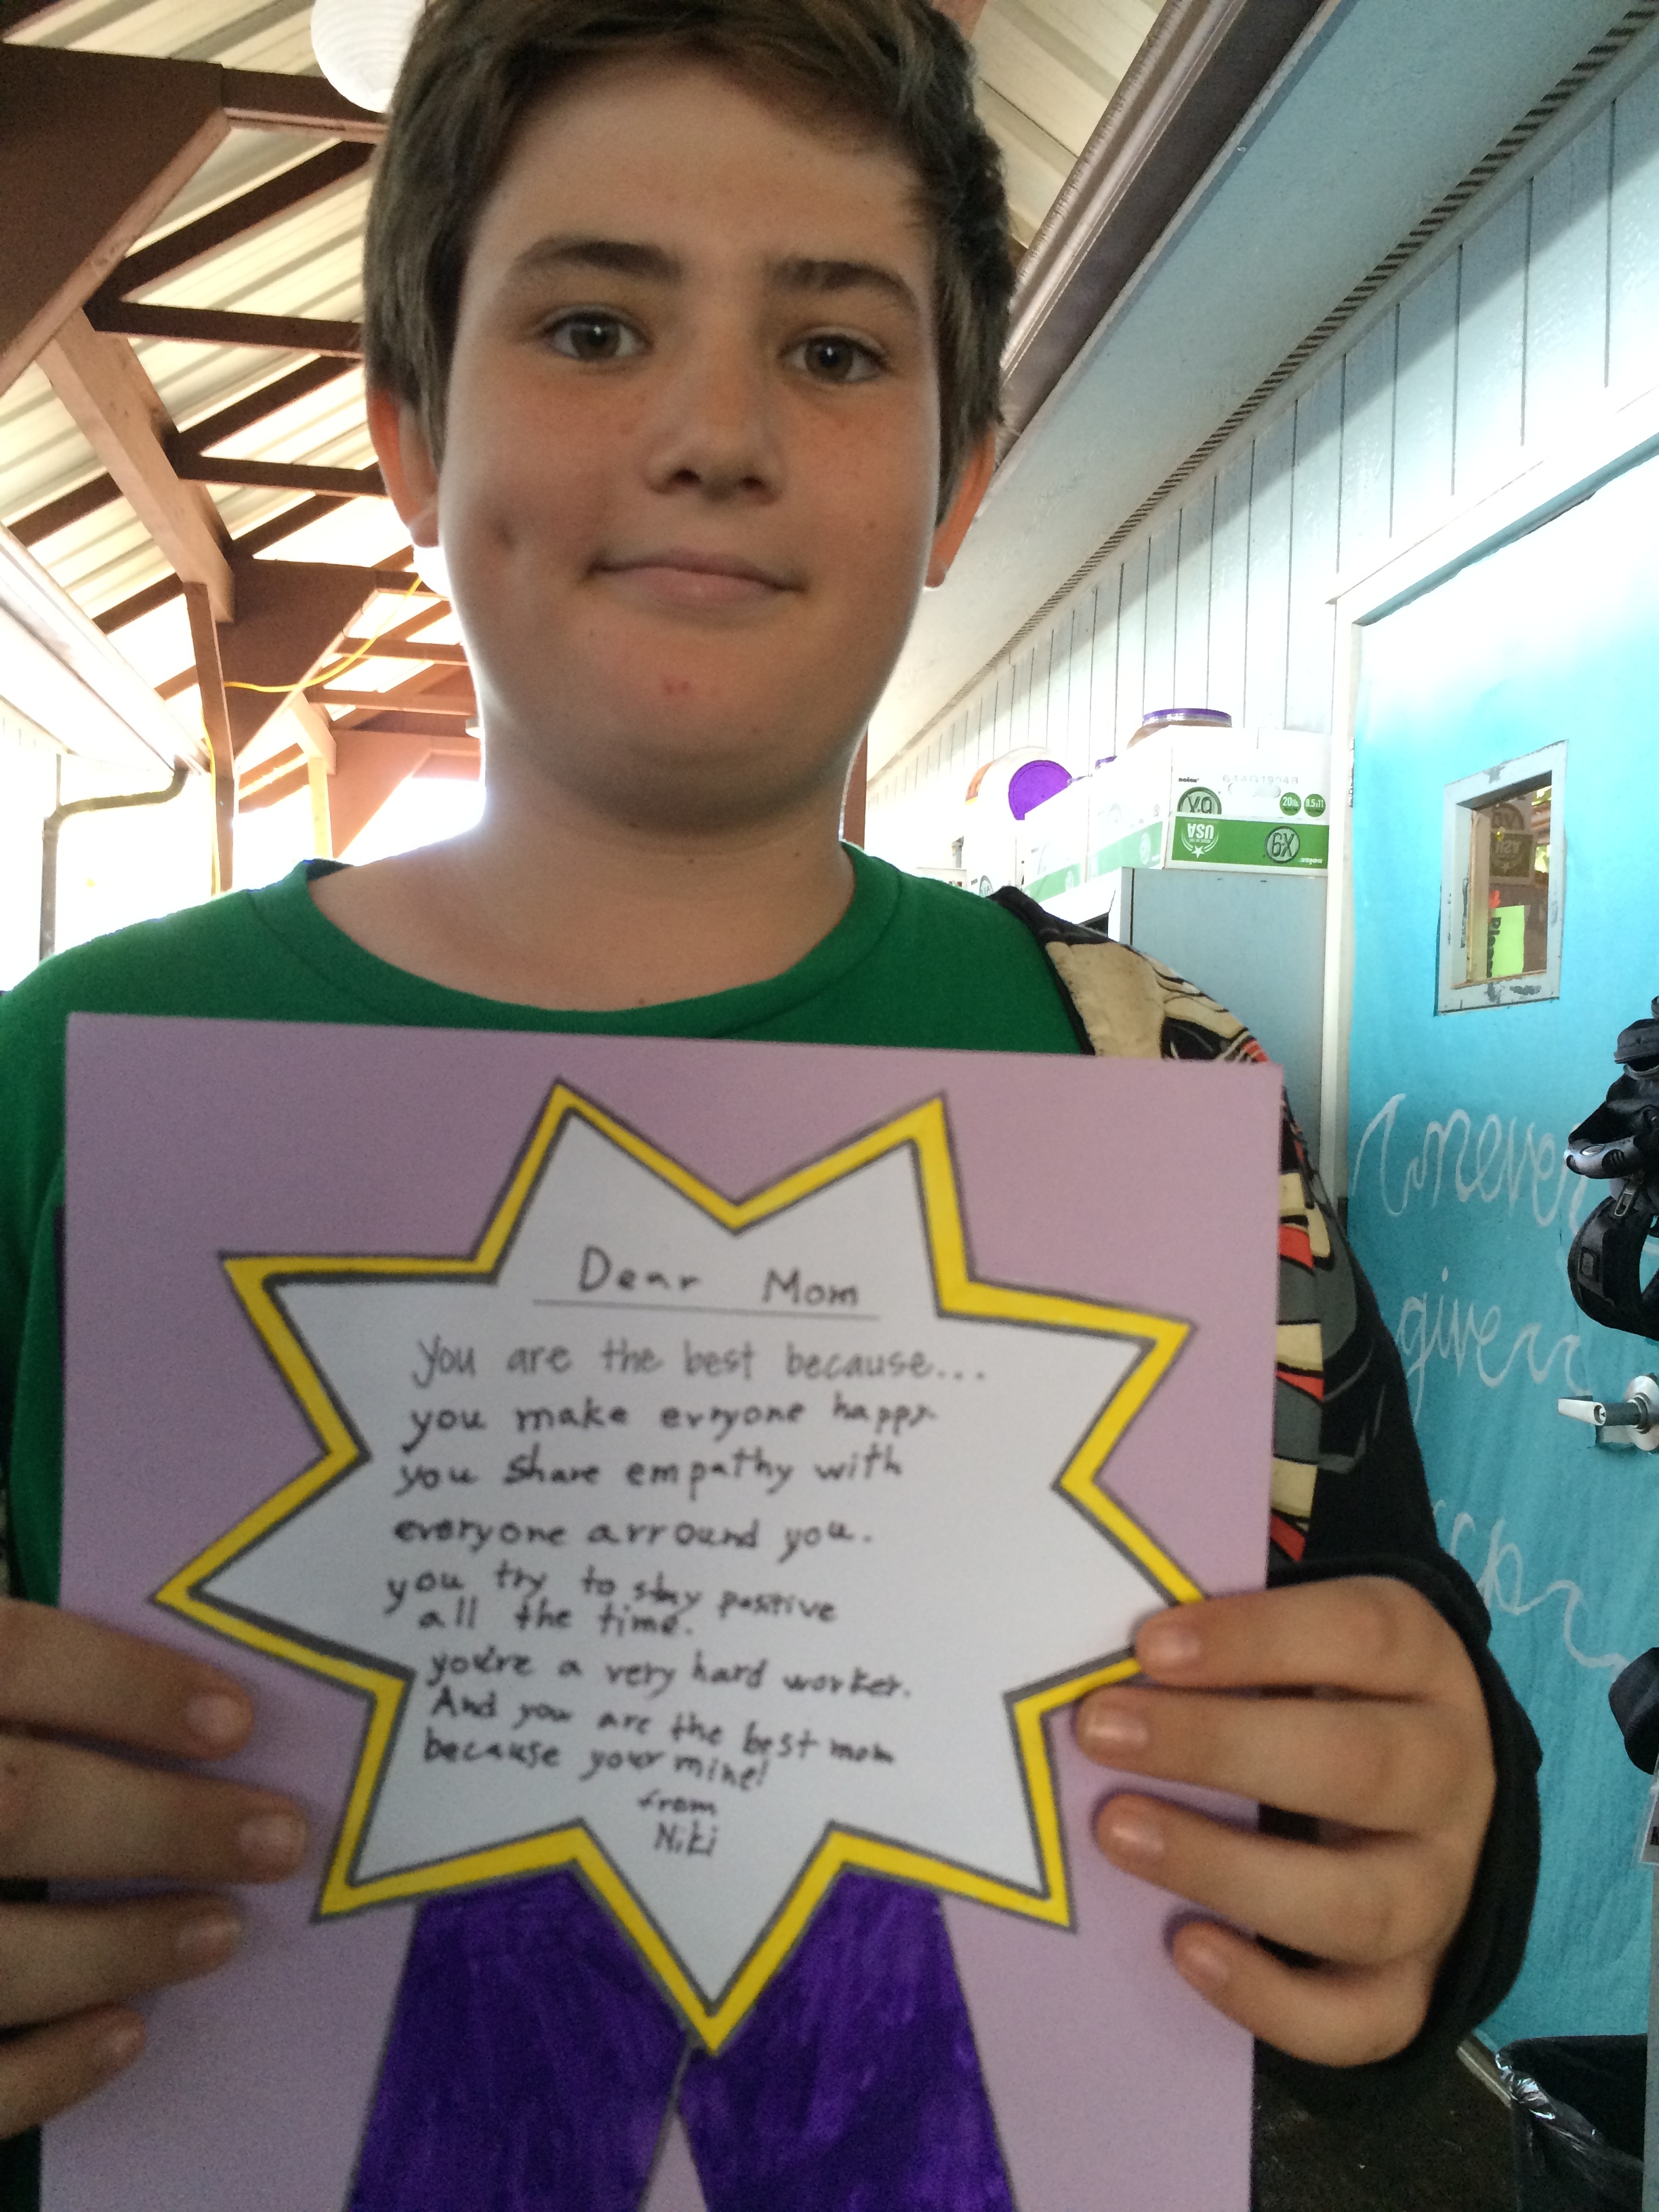 Dear Mom
You are the best because...
you make evryone happy.
you share empathy with
everyone arround you.
you try to stay positive
all the time.
you're a very hard worker.
And you are the best mom
because your mine!
from
Niki
never
give
up
boise
X-9
USA
20lb.
8.5x11
X-9